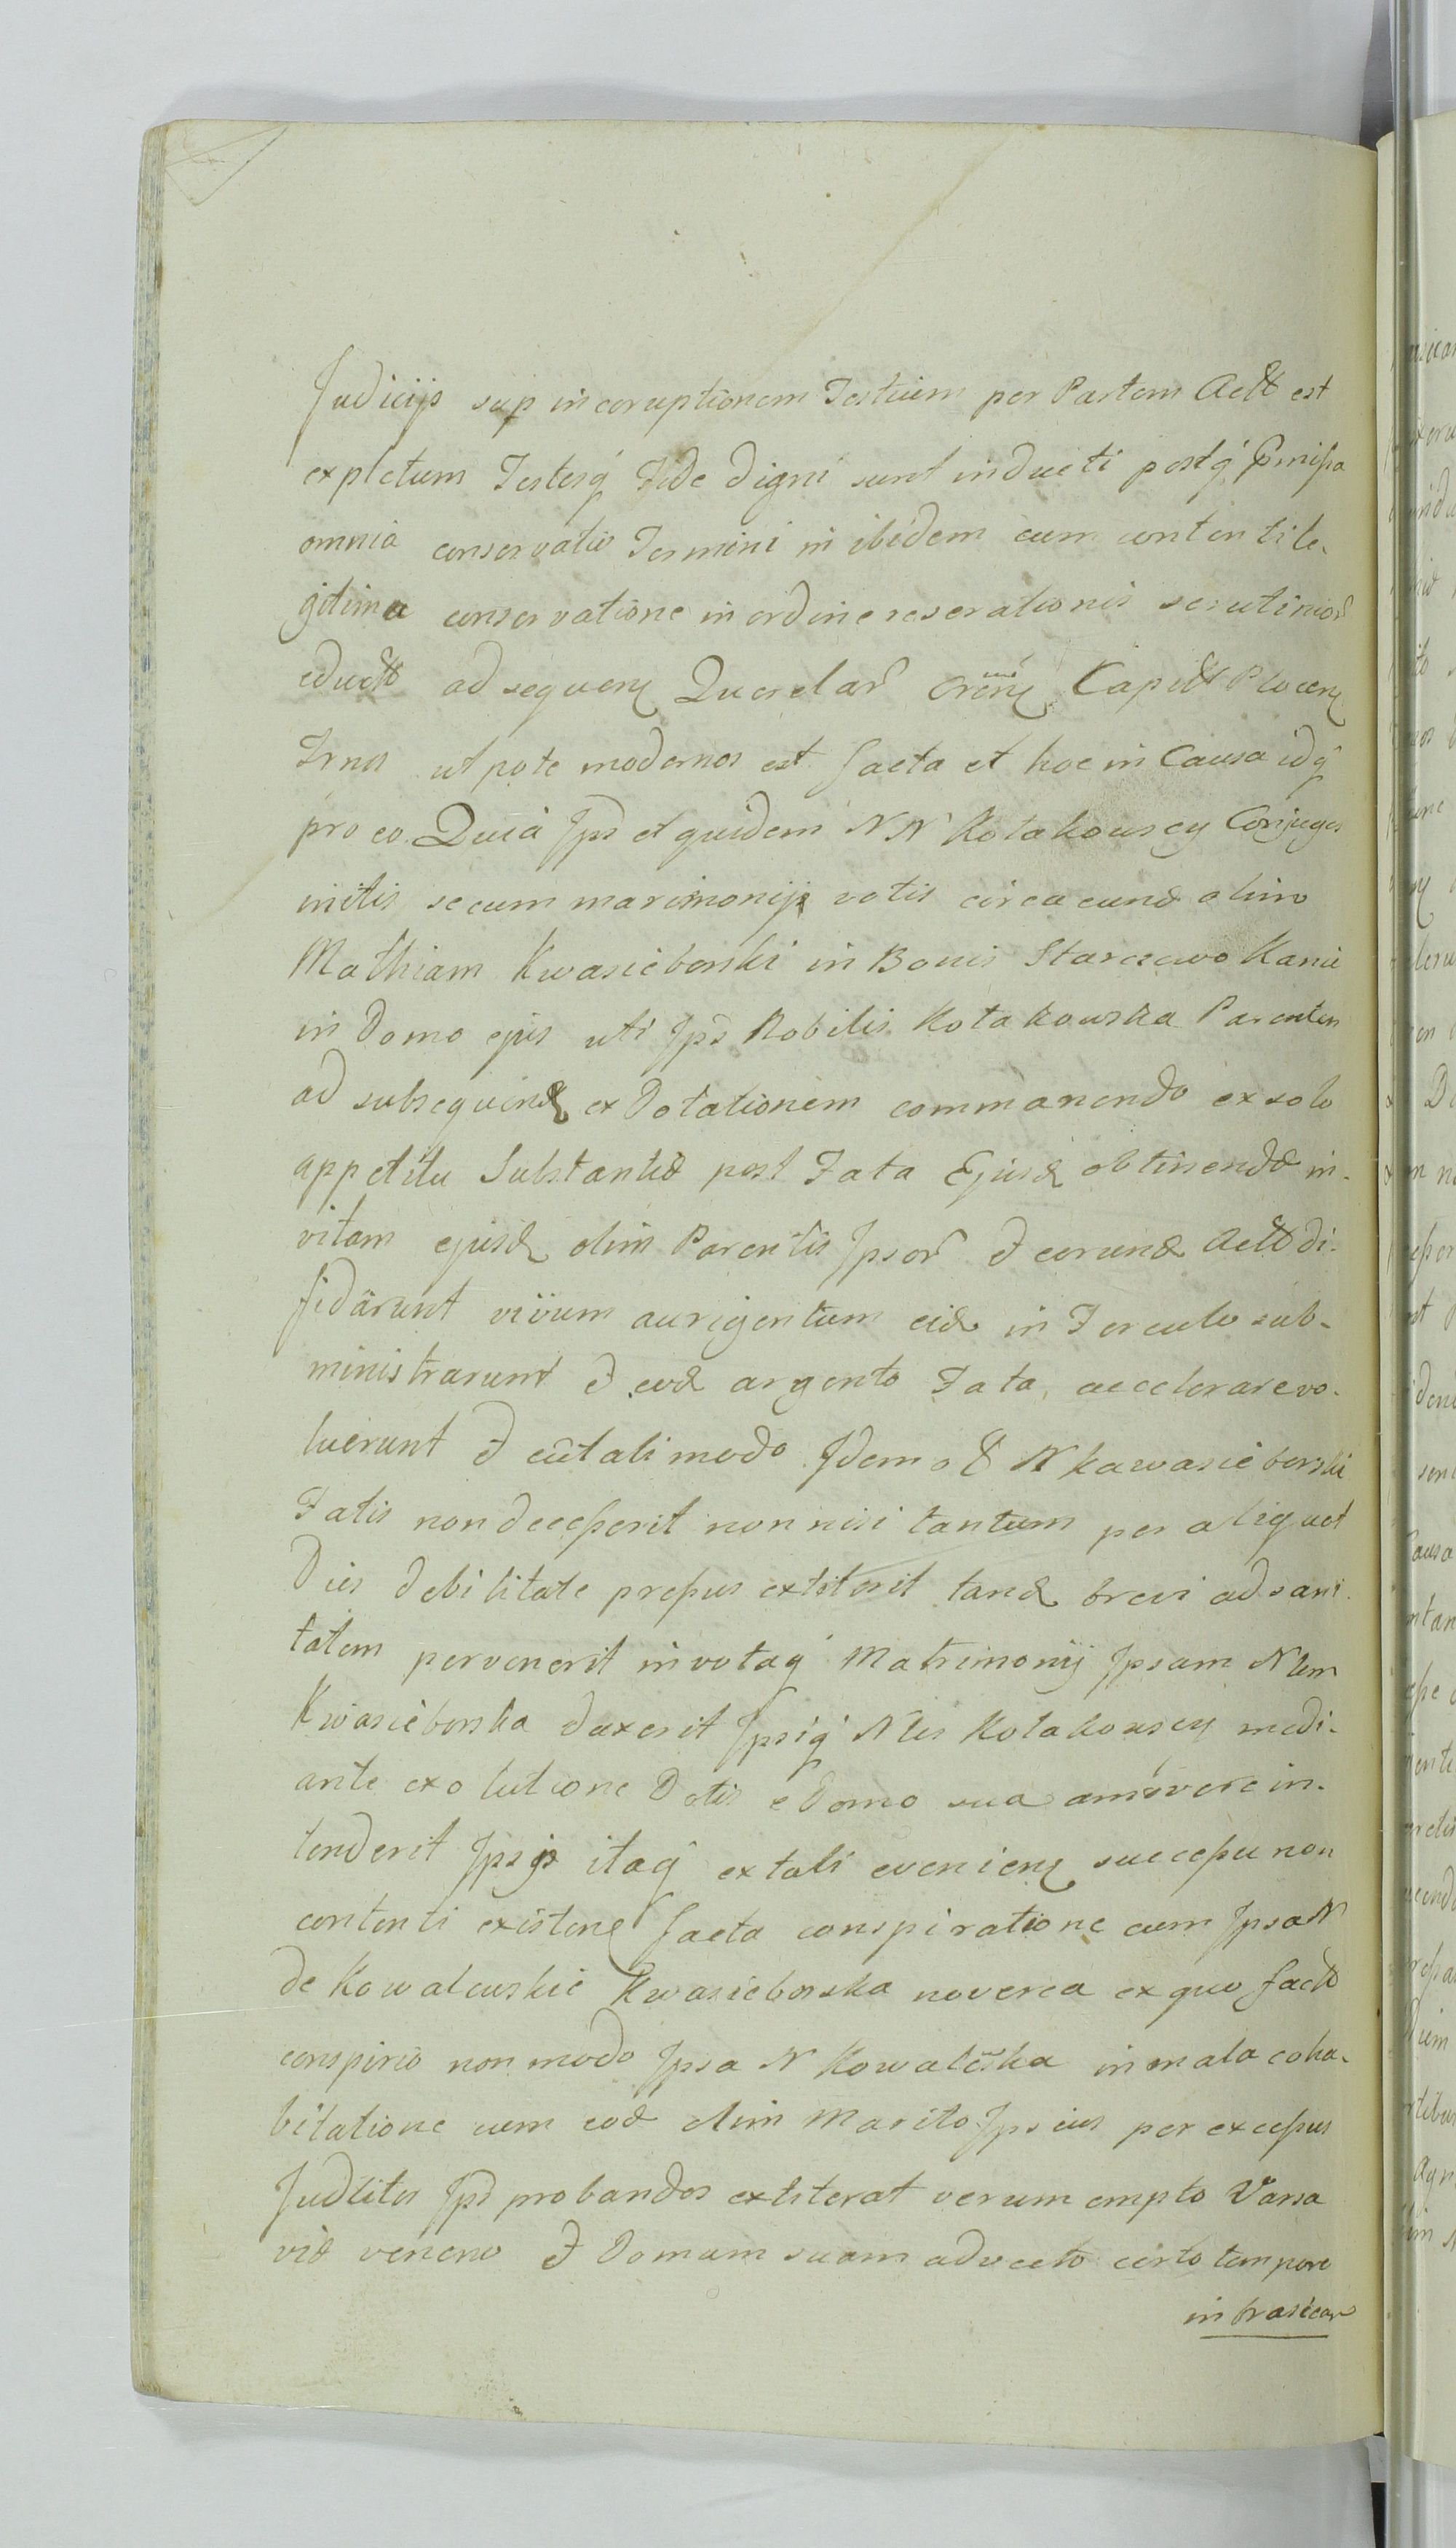 Judicijs sup incoruptionem Testium per Partem Actt est
expletum Testesq̃ Fide digni sunt inducti postq̃ p̃missa
omnia conservatio Termini in ibidem cum contenti le-
gitima conservatione in ordine reserationis scrutinior̃
educt ad sequen Querelar̃ Capitt Plocen
Trnos ut pote modernos est facta et hoc in Causa idq̃
pro eo. Quia Jpsi et quidem NN Kołakowscy Conjuges
initis secum marimonijs votis circa eund olim
Mathiam Kwasieborski in Bonis Starczewo Kanie
in Domo ejus uti Jps Nobilis Kołakowska Parenten
ad subsequend exdotationem commanendo ex solo
appetitu Substantiæ post Fata Ejusd obtinendæ in-
vitam ejusd olim Parentis Jpsor̃ & eorund Actt di-
fidarunt vivum aurigentum eid in Ferculo sub-
ministrarunt & eod argento Fata accelerare vo-
luerunt & cũ tali modo Jdem o& N Kawasieborski
Fatis non decesserit non nisi tantum per aliquot
Dies debilitate pressus extiterit tand brevi ad sani-
tatem pervenerit in votaq̃ Matrimonij Jpsam Nlem
Kwasieborska duxerit Jpsiq̃ Nles Kołakowscy medi-
ante exolutione Dotis e Domo sua amovere in-
tenderit Jpsijs itaq̃ ex tali evenien successu non
contenti existen facta conspiratione cum Jpsa N
de Kowalewskie Kwasieborska noverca ex quo facto
conspirio non modo Jpsa N Kowalẽska in mala coha-
bitatione cum eod olim Marito Jpsius per excessus
Judlitos Jps probandos extiterat verum empto Varsa
viæ veneno & Domum suam advecto certo tempore
intrasecar